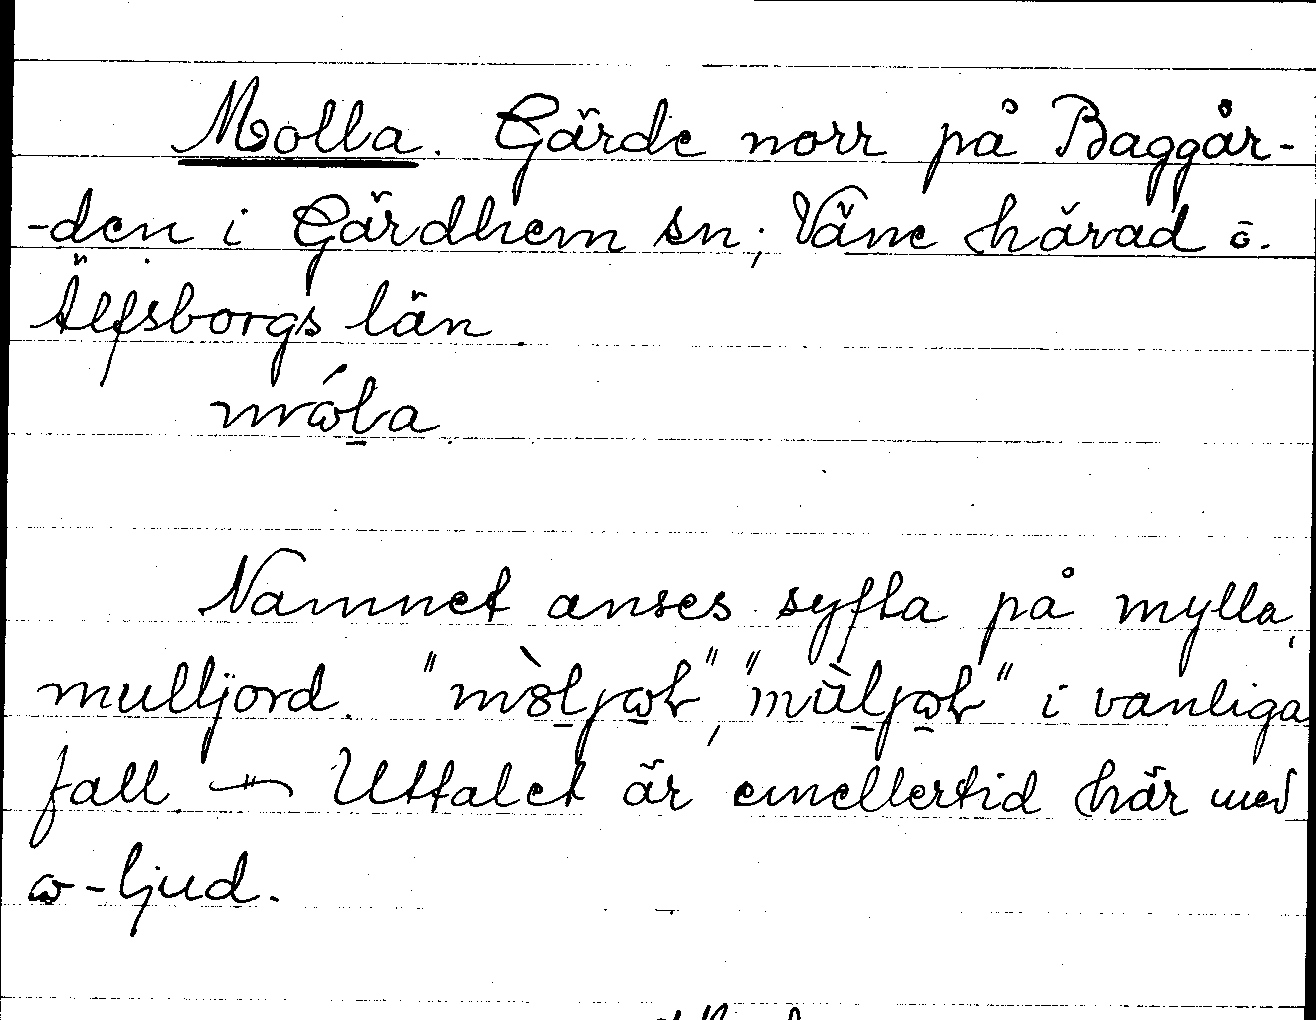 Molla. Gärde norr på Baggår-
-den i Gärdhem sn; Väne härad o.
Älfsborgs län.
Namnet anses syfta på mylla,
mulljord. i vanliga
fall. — Uttalet är emellertid här med
ω-ljud.